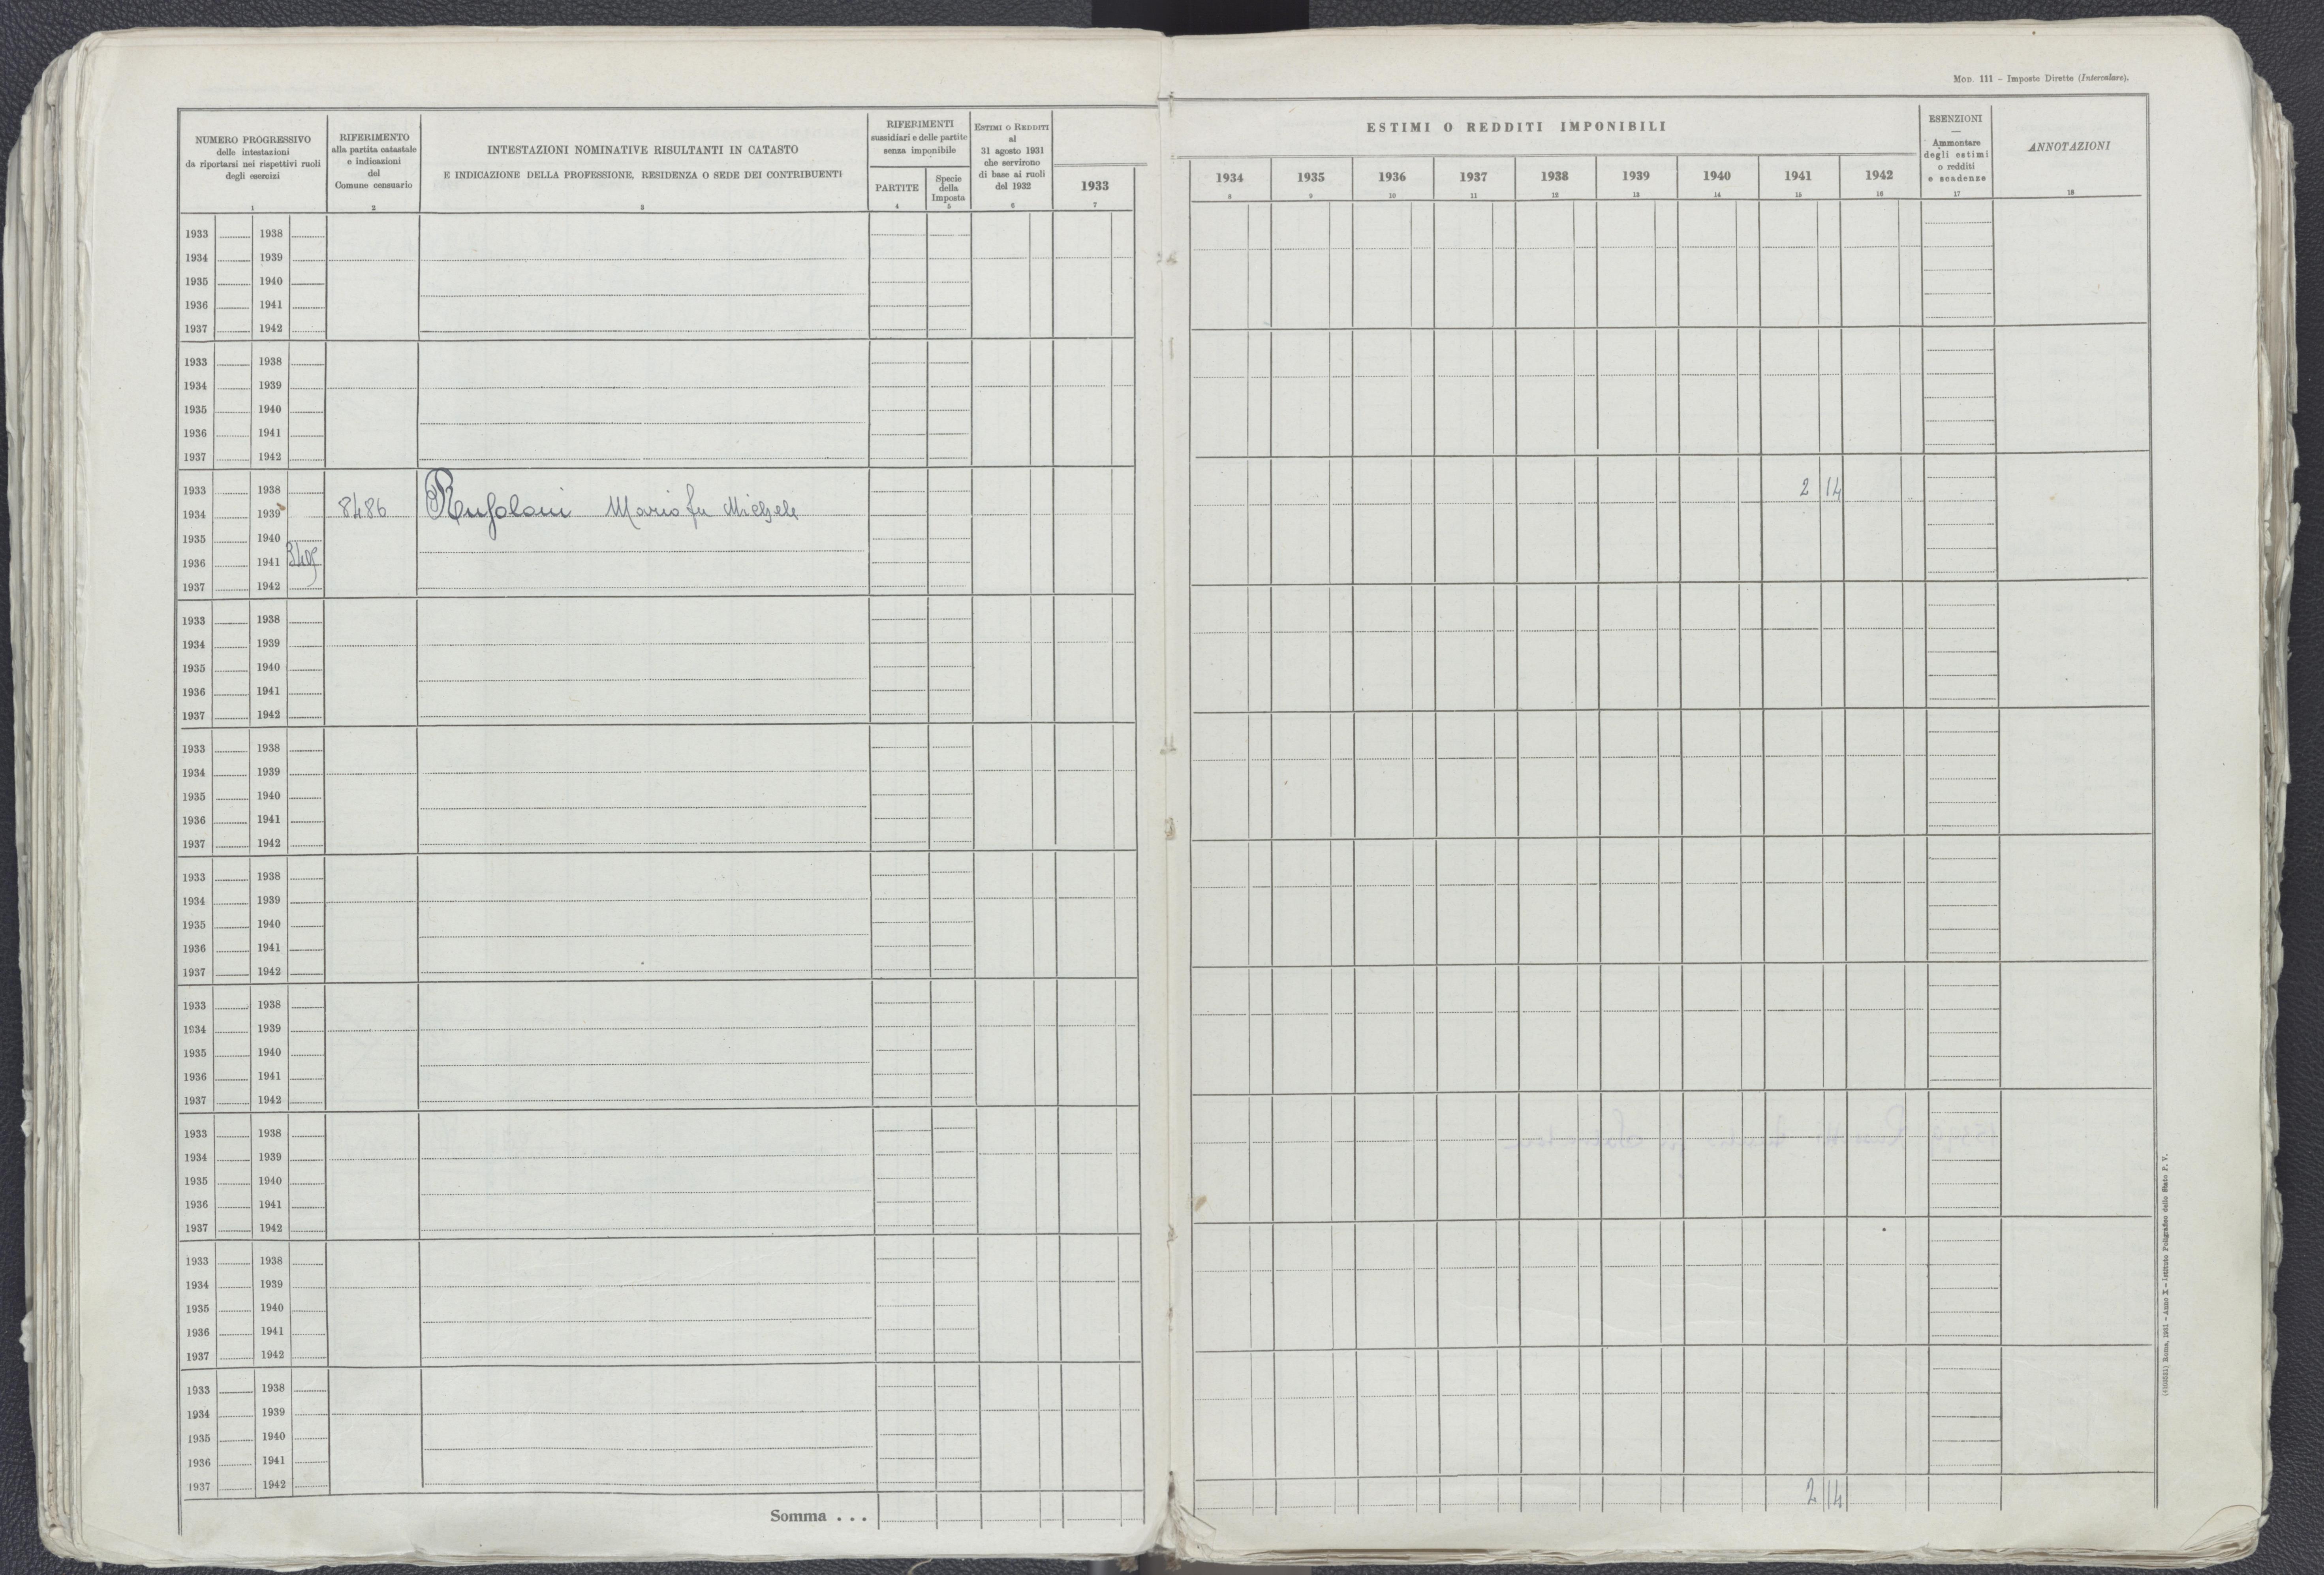 Mod. 111 – Imposte Dirette (Intercalare).
NUMERO PROGRESSIVO
delle intestazioni
da riportarsi nei rispettivi ruoli
degli esercizi
1
RIFERIMENTO
alla partita catastale
e indicazioni
del
Comune censuario
2
INTESTAZIONI NOMINATIVE RISULTANTI IN CATASTO
E INDICAZIONE DELLA PROFESSIONE, RESIDENZA O SEDE DEI CONTRIBUENTI
3
RIFERIMENTI
sussidiari e delle partite
senza imponibile
PARTITE
4
Specie
della
Imposta
5
Estimi o Redditi
al
31 agosto 1931
che servirono
di base ai ruoli
del 1932
6
1933
7
ESTIMI O REDDITI IMPONIBILI
1934 1935 1936 1937 1938 1939 1940 1941 1942
8 9 10 11 12 13 14 15 16
ESENZIONI
—
Ammontare
degli estimi
o redditi
e scadenze
17
ANNOTAZIONI
18
1933 1938
1934 1939
1935 1940
1936 1941
1937 1942
1933 1938
1934 1939
1935 1940
1936 1941
1937 1942
1933 1938 2 14
1934 1939 8486 Mario fu Michele
1935 1940
1936 1941
1937 1942
1933 1938
1934 1939
1935 1940
1936 1941
1937 1942
1933 1938
1934 1939
1935 1940
1936 1941
1937 1942
1933 1938
1934 1939
1935 1940
1936 1941
1937 1942
1933 1938
1934 1939
1935 1940
1936 1941
1937 1942
1933 1938
1934 1939
1935 1940
1936 1941
1937 1942
1933 1938
1934 1939
1935 1940
1936 1941
1937 1942
1933 1938
1934 1939
1935 1940
1936 1941
1937 1942
Somma . . . 2 14
Roma, 1931 – Anno X – Istituto Poligrafico dello Stato P. V.